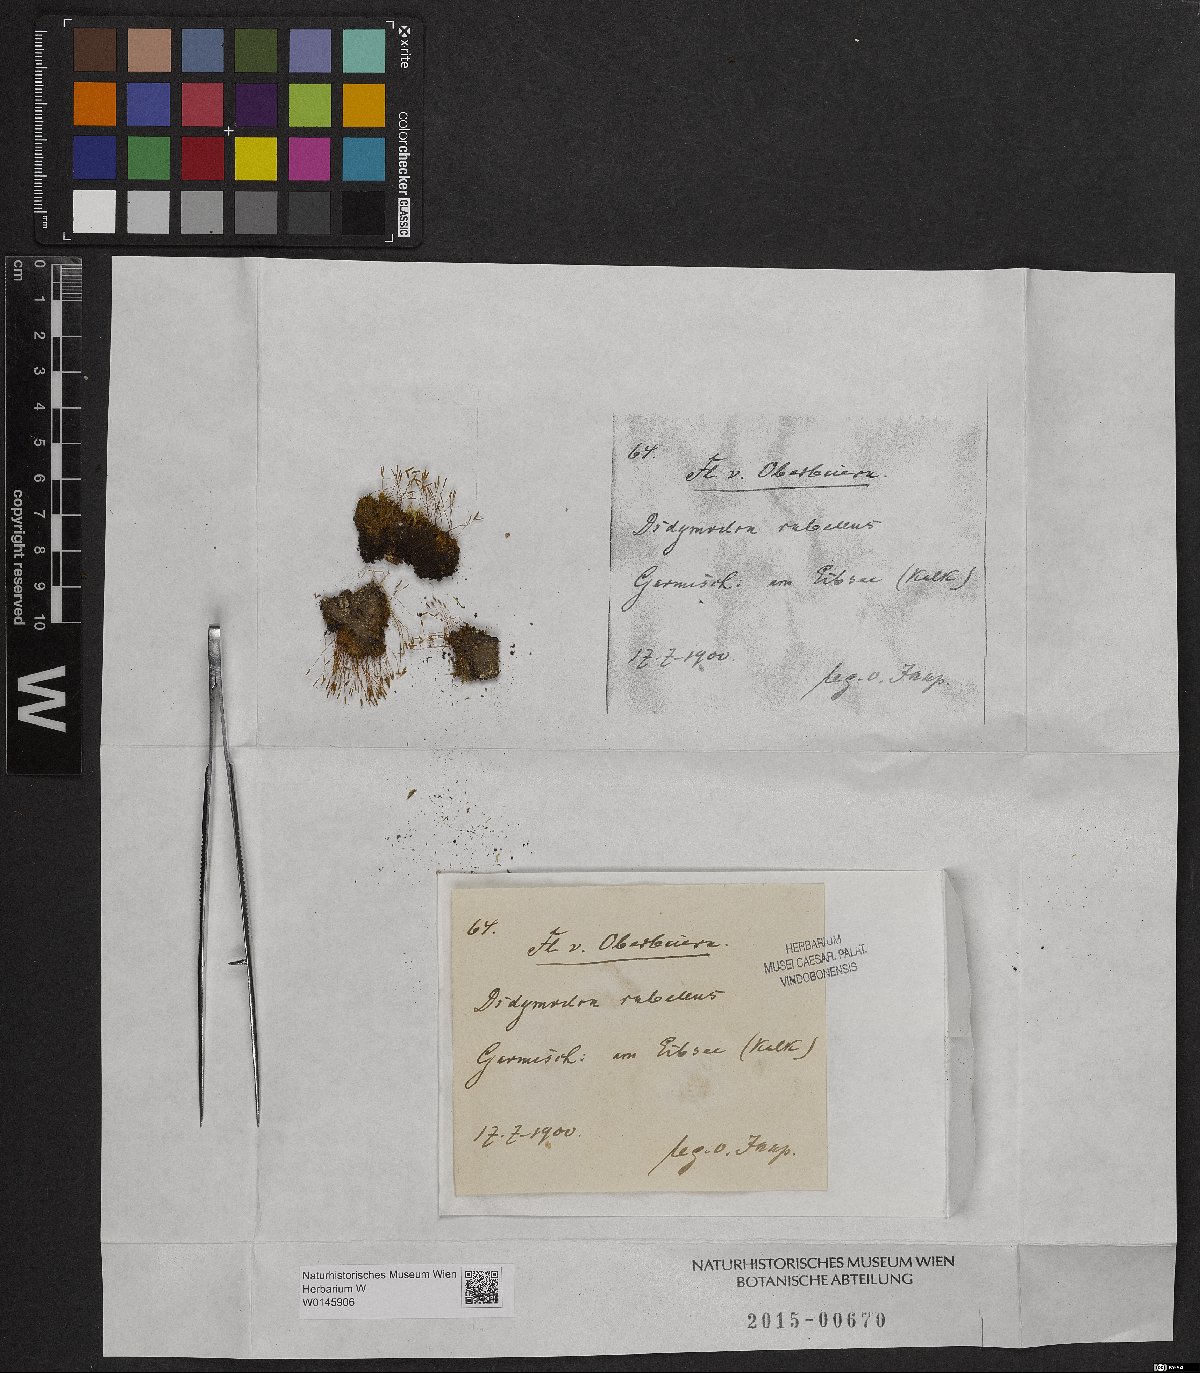 x-rite
colorchecker CLASSIC
mm
0 1 2 3 4 5 6 7 8 9 10
cm
copyright reserved
W
64.
Fl. v. Oberbaiern.
Didymodon rubellus
Garmisch: am Eibsee (Kalk)
17.7.1900.
leg. O. Jaap.
64.
Fl. v. Oberbaiern.
HERBARIUM
MUSEI CAESAR. PALAT.
VINDOBONENSIS
Didymodon rubellus
Garmisch: am Eibsee (Kalk)
17.7.1900.
leg. O. Jaap.
Naturhistorisches Museum Wien
Herbarium W
W0145906
NATURHISTORISCHES MUSEUM WIEN
BOTANISCHE ABTEILUNG
2015-00670